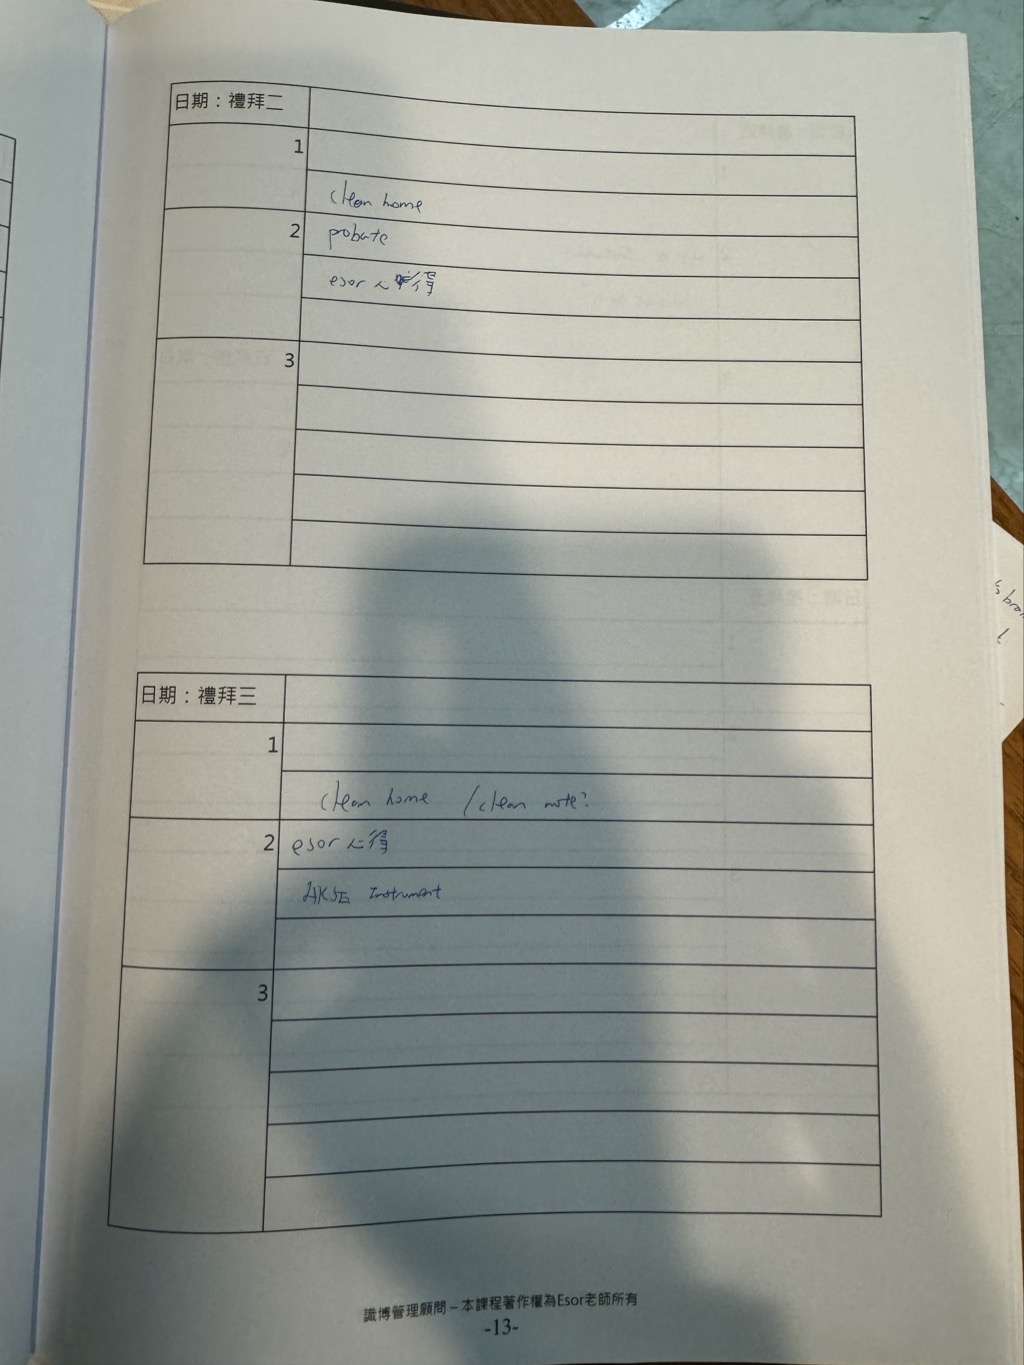 日期：禮拜二
1
clean home
2
pobate
esor 心得
3
日期：禮拜三
1
clean home /clean note?
2
esor 心得
HKSE Instrument
3
識博管理顧問 – 本課程著作權為Esor老師所有
-13-